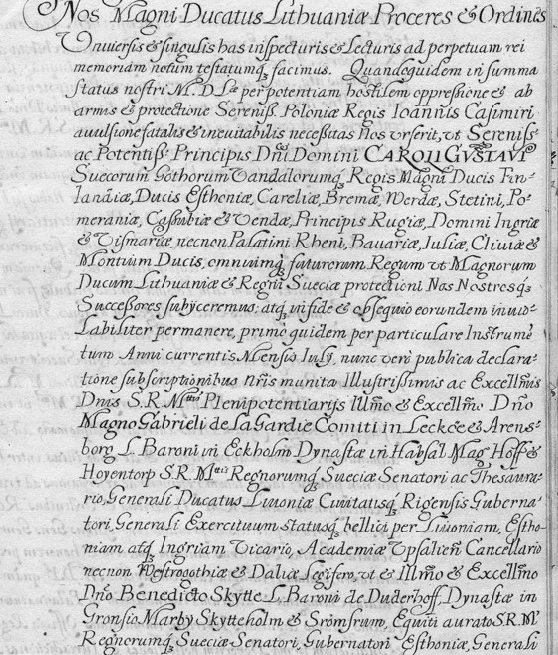 Nos Magni Ducatus Lithuaniæ Proceres & Ordines
Universis & singulis has inspecturis & Lecturis ad perpetuam rei
memoriam notum testatumq₃ facimus. Quandoquidem in summa
status nostri M. D. Læ per potentiam hostilem oppressione & ab
armis & protectione Sereniss. Poloniæ Regis Ioannis Casimiri
avulsione fatalis & inevitabilis necessitas Nos urserit, ut Sereniss.
ac Potentiss. Principis Dñi Domini CAROLI GVSTAVI
Suecorum Gothorum Vandalorumq₃ Regis Magni Ducis Fin-
landiæ, Ducis Esthoniæ, Careliæ, Bremæ, Werdæ, Stetini, Po-
meraniæ, Cassubiæ & Vendæ, Principis Rugiæ, Domini Ingriæ
& Vismariæ, necnon Palatini Rheni, Bavariæ, Juliæ, Cliviæ &
Montium Ducis, omniumq₃ futurorum Regum ut Magnorum
Ducum Lithuaniæ & Regni Sueciæ protectioni Nos Nostrosq₃
Successores subijceremus, atq₃ in fide & obsequio eorundem invio-
labiliter permanere, primò quidem per particulare Instrumē
tum Anni currentis Mensis Iulij, nunc verò publica declara-
tione subscriptionibus nr̃is munita Illustrissimis ac Excellm̃is
Dnis S. R. Mttis Plenipotentiarijs Illmo & Excellmo Dño
Magno Gabrieli de La Gardie Comiti in Lecköe & Arens-
borg L. Baroni in Eckholm Dynastæ in Habsal Mag: Hoff &
Hoyentorp S. R. Mttis Regnorumq₃ Sueciæ Senatori ac Thesaura-
rio, Generali Ducatus Livoniæ Civitatisq₃ Rigensis Guberna-
tori, Generali Exercituum statusq₃ bellici per Livoniam, Estho-
niam atq₃ Ingriam Vicario, Academiæ Upsalien̄ Cancellario
necnon Westrogothiæ & Daliæ Legifero, ut & Illmo & Excellmo
Dño Benedicto Skytte L. Baroni de Duderhoff, Dynastæ in
Gronsio Marby Skytteholm & Strömsrum, Equiti aurato S. R. Mttis
Regnorumq₃ Sueciæ Senatori, Gubernatori Esthoniæ, Generali